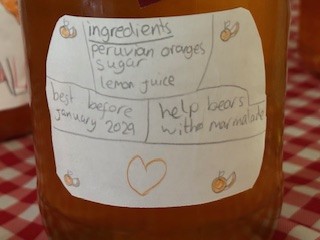 ingredients
peruvian oranges
sugar
lemon juice
best before
january 2029
help bears
with marmalade